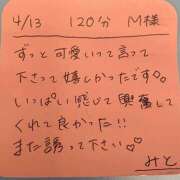 4/13 120分 M様
ずっと可愛いって言って
下さって嬉しかったです♡♡
いっぱい感じて興奮して
くれて良かった!!
また誘って下さい♡
みと